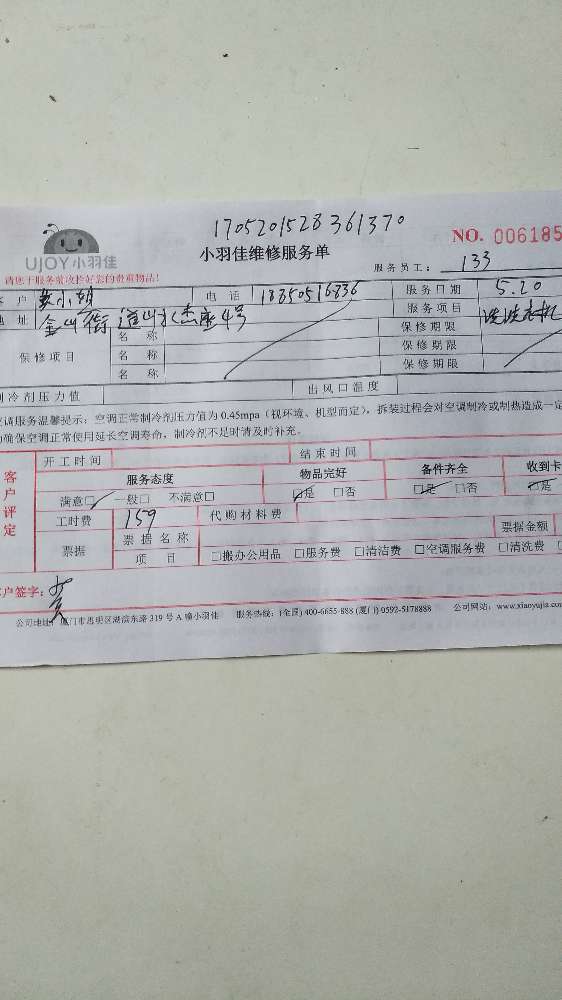 170520152836 1370
UJOY小羽佳
小羽佳维修服务单
NO. 006185
请您于服务前收拾好您的贵重物品!
服务员工: 133
客 户 小胡 电 话 18350516836 服务日期 5.20
地 址 金山街道山水杰座4号 服务项目 洗洗衣机
保修项目 名 称 保修期限
名 称 保修期限
名 称 保修期限
制冷剂压力值 出风口温度
空调服务温馨提示:空调正常制冷剂压力值为 0.45mpa(视环境、机型而定),拆装过程会对空调制冷或制热造成一定
为确保空调正常使用延长空调寿命,制冷剂不足时请及时补充。
客户评定
开工时间 结束时间
服务态度 物品完好 备件齐全 收到卡
满意□ 一般□ 不满意□ □是 □否 □是 □否 □是
工时费 159 代购材料费
票据 票据名称 票据金额
项 目 □搬办公用品 □服务费 □清洁费 □空调服务费 □清洗费
客户签字:
公司地址:厦门市思明区湖滨东路 319 号 A 幢小羽佳 服务热线:(全国) 400-6655-888 (厦门) 0592-5178888 公司网站:www.xiaoyujia.com